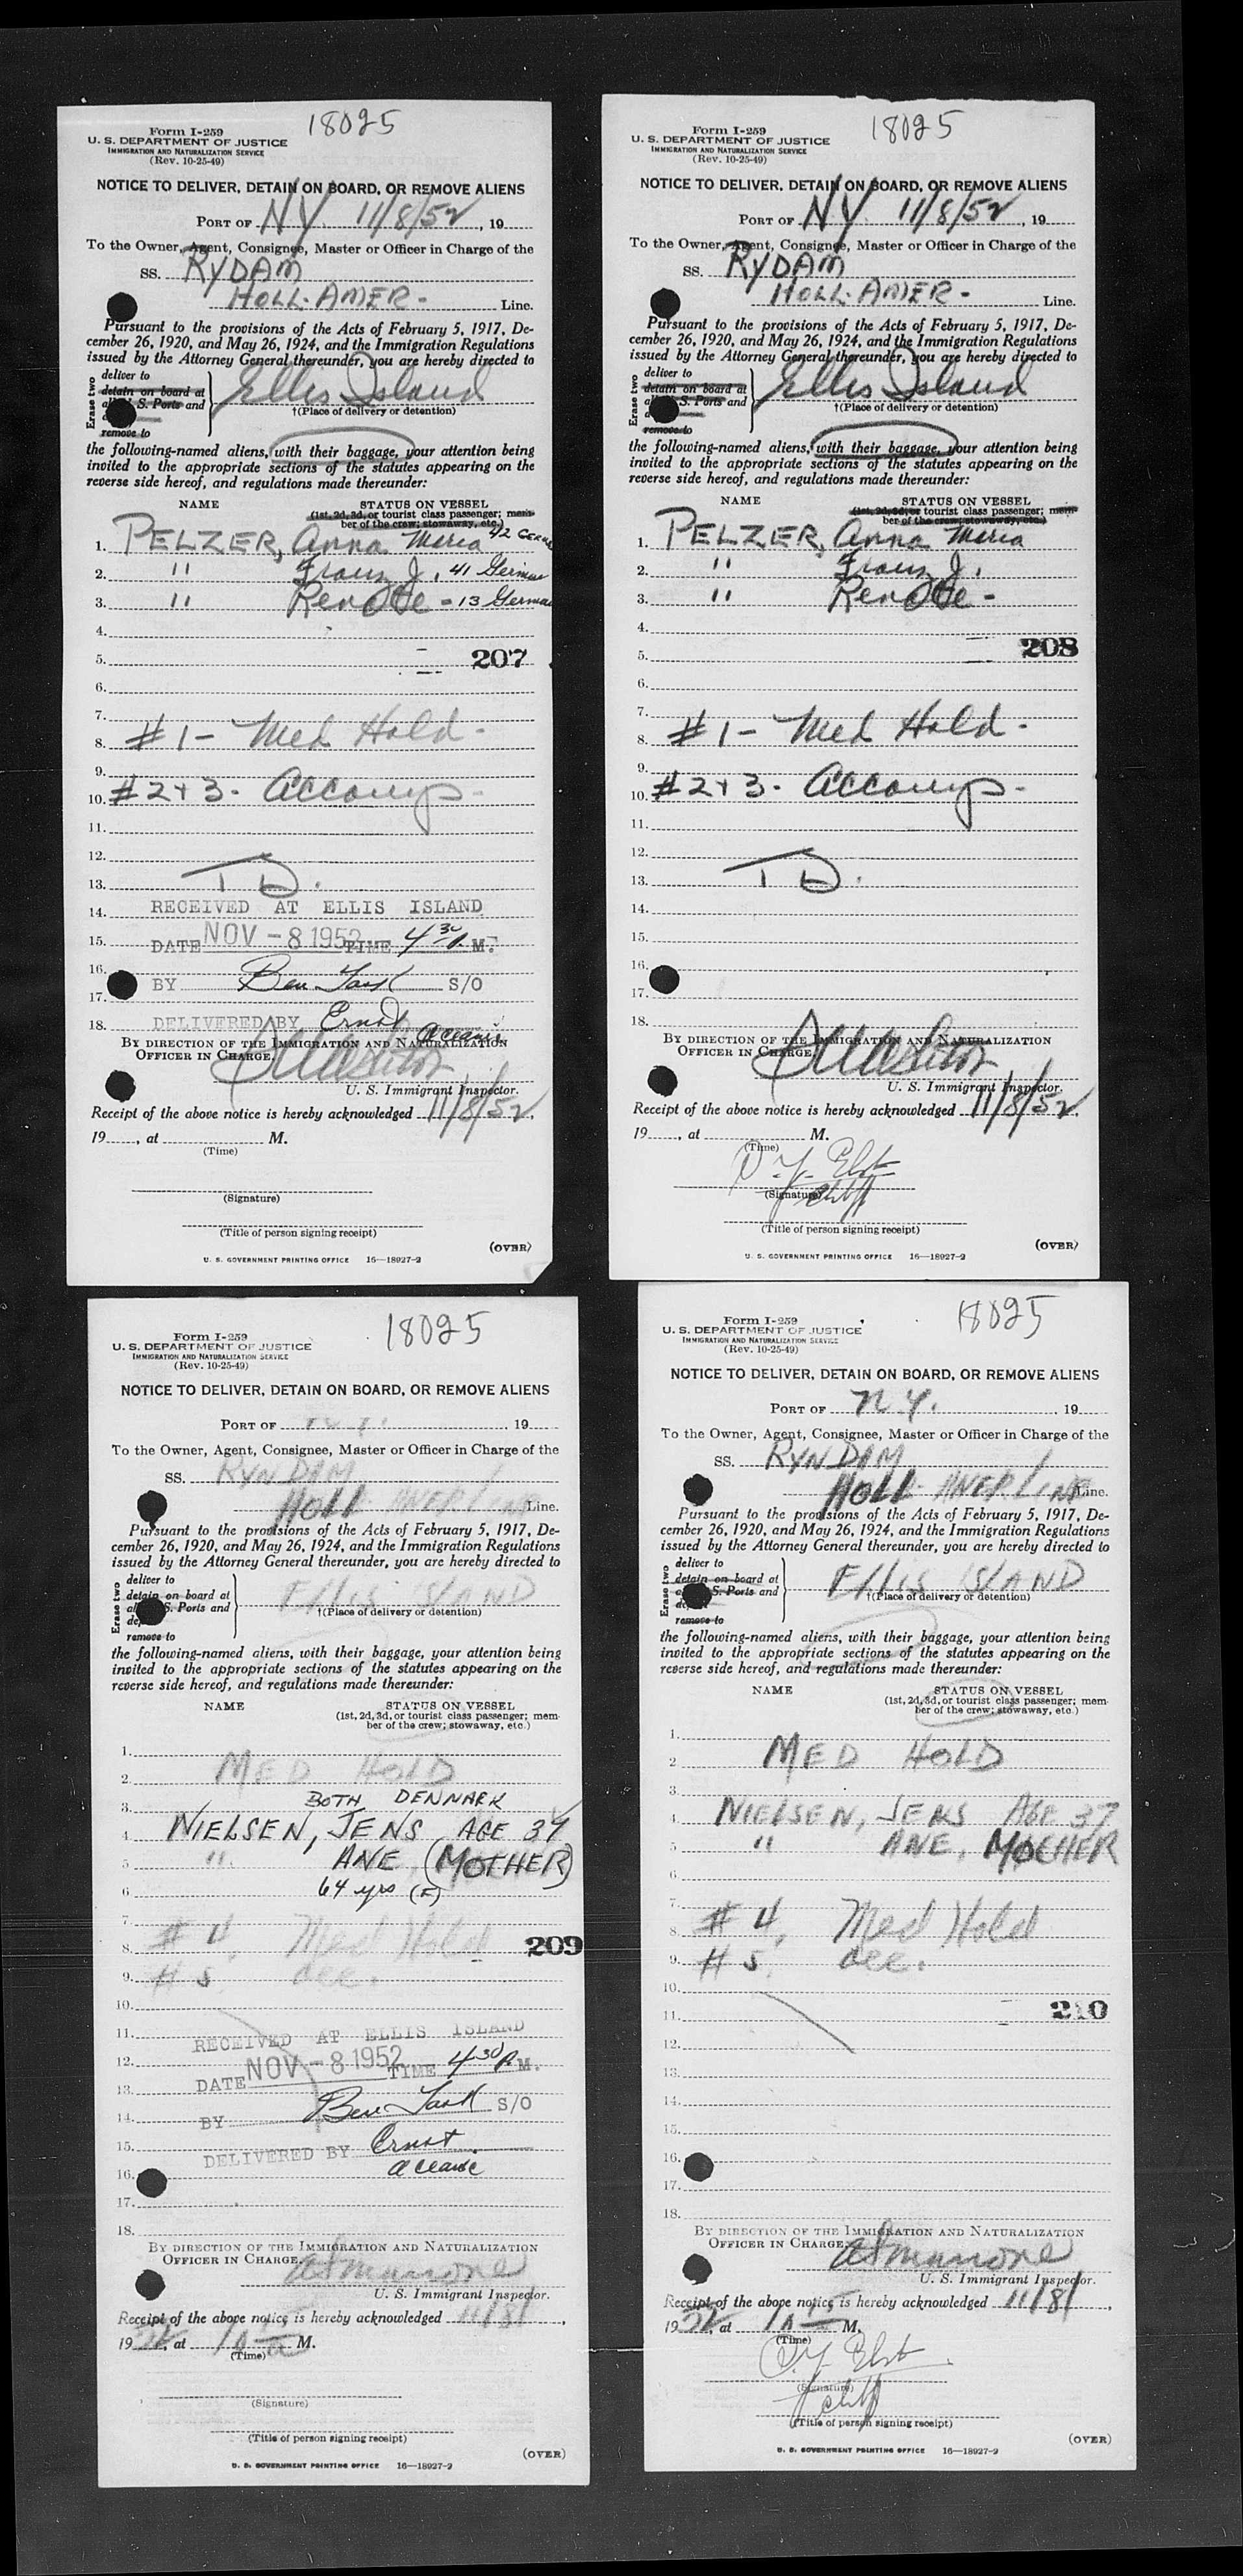 18025
Form I-259
U. S. DEPARTMENT OF JUSTICE
IMMIGRATION AND NATURALIZATION SERVICE
(Rev. 10-25-49)
NOTICE TO DELIVER, DETAIN ON BOARD, OR REMOVE ALIENS
PORT OF NY 11/8/52, 19
To the Owner, Agent, Consignee, Master or Officer in Charge of the
SS. RYDAM
HOLL-AMER- Line.
Pursuant to the provisions of the Acts of February 5, 1917, De-
cember 26, 1920, and May 26, 1924, and the Immigration Regulations
issued by the Attorney General thereunder, you are hereby directed to
Erase two
deliver to
detain on board at
S. Ports and
remove to
Ellis Island
†(Place of delivery or detention)
the following-named aliens, with their baggage, your attention being
invited to the appropriate sections of the statutes appearing on the
reverse side hereof, and regulations made thereunder:
NAME STATUS ON VESSEL
(1st, 2d, 3d, or tourist class passenger; mem-
ber of the crew; stowaway, etc.)
1. PELZER, Anna Maria 42
2. " Franz J. 41 German
3. " Renate - 13 German
4.
5. 207
6.
7.
8. #1- Med Hold-
9.
10. #2+3- Accomp-
11.
12.
13. TD.
14. RECEIVED AT ELLIS ISLAND
15. DATE NOV -8 1952 TIME 4 30 P.M.
16. BY Ben S/O
17.
18. DELIVERED BY Ernst Oceanic
BY DIRECTION OF THE IMMIGRATION AND NATURALIZATION
OFFICER IN CHARGE.
U. S. Immigrant Inspector.
Receipt of the above notice is hereby acknowledged 11/8/52,
19, at M.
(Time)
(Signature)
(Title of person signing receipt)
(OVER)
U. S. GOVERNMENT PRINTING OFFICE 16—18927-2
18025
Form I-259
U. S. DEPARTMENT OF JUSTICE
IMMIGRATION AND NATURALIZATION SERVICE
(Rev. 10-25-49)
NOTICE TO DELIVER, DETAIN ON BOARD, OR REMOVE ALIENS
PORT OF NY 11/8/52, 19
To the Owner, Agent, Consignee, Master or Officer in Charge of the
SS. RYDAM
HOLL-AMER- Line.
Pursuant to the provisions of the Acts of February 5, 1917, De-
cember 26, 1920, and May 26, 1924, and the Immigration Regulations
issued by the Attorney General thereunder, you are hereby directed to
Erase two
deliver to
detain on board at
S. Ports and
remove to
Ellis Island
†(Place of delivery or detention)
the following-named aliens, with their baggage, your attention being
invited to the appropriate sections of the statutes appearing on the
reverse side hereof, and regulations made thereunder:
NAME STATUS ON VESSEL
(1st, 2d, 3d, or tourist class passenger; mem-
ber of the crew; stowaway, etc.)
1. PELZER, Anna Maria
2. " Franz J.
3. " Renate -
4.
5. 208
6.
7.
8. #1- Med Hold-
9.
10. #2+3- Accomp-
11.
12.
13. TD.
14.
15.
16.
17.
18.
BY DIRECTION OF THE IMMIGRATION AND NATURALIZATION
OFFICER IN CHARGE.
U. S. Immigrant Inspector.
Receipt of the above notice is hereby acknowledged 11/8/52,
19, at M.
(Time)
(Signature)
(Title of person signing receipt)
(OVER)
U. S. GOVERNMENT PRINTING OFFICE 16—18927-2
18025
Form I-259
U. S. DEPARTMENT OF JUSTICE
IMMIGRATION AND NATURALIZATION SERVICE
(Rev. 10-25-49)
NOTICE TO DELIVER, DETAIN ON BOARD, OR REMOVE ALIENS
PORT OF N.Y., 19
To the Owner, Agent, Consignee, Master or Officer in Charge of the
SS. RYNDAM
HOLL AMER LINE Line.
Pursuant to the provisions of the Acts of February 5, 1917, De-
cember 26, 1920, and May 26, 1924, and the Immigration Regulations
issued by the Attorney General thereunder, you are hereby directed to
Erase two
deliver to
detain on board at
S. Ports and
remove to
Ellis ISLAND
†(Place of delivery or detention)
the following-named aliens, with their baggage, your attention being
invited to the appropriate sections of the statutes appearing on the
reverse side hereof, and regulations made thereunder:
NAME STATUS ON VESSEL
(1st, 2d, 3d, or tourist class passenger; mem-
ber of the crew; stowaway, etc.)
1.
2. MED HOLD
3. BOTH DENMARK
4. NIELSEN, JENS AGE 37
5. " ANE, (MOTHER)
6. 64 yrs (F)
7.
8. #4, Med Hold 209
9. #5, acc.
10.
11. RECEIVED AT ELLIS ISLAND
12. DATE NOV -8 1952 TIME 4 30 P.M.
13.
14. BY Ben S/O
15. DELIVERED BY Ernst
16. Oceanic
17.
18.
BY DIRECTION OF THE IMMIGRATION AND NATURALIZATION
OFFICER IN CHARGE.
U. S. Immigrant Inspector.
Receipt of the above notice is hereby acknowledged 11/8/,
19 52, at M.
(Time)
(Signature)
(Title of person signing receipt)
(OVER)
U. S. GOVERNMENT PRINTING OFFICE 16—18927-2
18025
Form I-259
U. S. DEPARTMENT OF JUSTICE
IMMIGRATION AND NATURALIZATION SERVICE
(Rev. 10-25-49)
NOTICE TO DELIVER, DETAIN ON BOARD, OR REMOVE ALIENS
PORT OF N.Y., 19
To the Owner, Agent, Consignee, Master or Officer in Charge of the
SS. RYNDAM
HOLL AMER LINE Line.
Pursuant to the provisions of the Acts of February 5, 1917, De-
cember 26, 1920, and May 26, 1924, and the Immigration Regulations
issued by the Attorney General thereunder, you are hereby directed to
Erase two
deliver to
detain on board at
S. Ports and
remove to
Ellis ISLAND
†(Place of delivery or detention)
the following-named aliens, with their baggage, your attention being
invited to the appropriate sections of the statutes appearing on the
reverse side hereof, and regulations made thereunder:
NAME STATUS ON VESSEL
(1st, 2d, 3d, or tourist class passenger; mem-
ber of the crew; stowaway, etc.)
1.
2 MED HOLD
3.
4. NIELSEN, JENS AGE 37
5. " ANE, MOTHER
6.
7.
8. #4, Med Hold
9. #5, acc.
10.
11. 210
12.
13.
14.
15.
16.
17.
18.
BY DIRECTION OF THE IMMIGRATION AND NATURALIZATION
OFFICER IN CHARGE.
U. S. Immigrant Inspector.
Receipt of the above notice is hereby acknowledged 11/8/,
19 52, at M.
(Time)
(Signature)
(Title of person signing receipt)
(OVER)
U. S. GOVERNMENT PRINTING OFFICE 16—18927-2